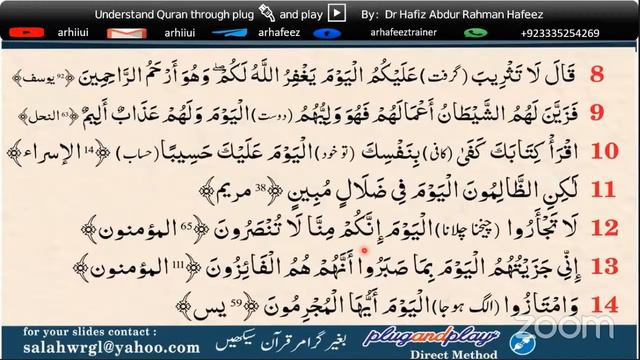 Understand Quran through plug and play By: Dr Hafiz Abdur Rahman Hafeez
arhiiui arhiiui arhafeez arhafeeztrainer +923335254269
8 قَالَ لَا تَثْرِيبَ (گرفت) عَلَيْكُمُ الْيَوْمَ يَغْفِرُ اللَّهُ لَكُمْ ۖ وَهُوَ أَرْحَمُ الرَّاحِمِينَ ﴿92 يوسف﴾
9 فَزَيَّنَ لَهُمُ الشَّيْطَانُ أَعْمَالَهُمْ فَهُوَ وَلِيُّهُمُ (دوست) الْيَوْمَ وَلَهُمْ عَذَابٌ أَلِيمٌ ﴿63 النحل﴾
10 اقْرَأْ كِتَابَكَ كَفَىٰ (کافی) بِنَفْسِكَ (تو خود) الْيَوْمَ عَلَيْكَ حَسِيبًا (حساب) ﴿14 الإسراء﴾
11 لَٰكِنِ الظَّالِمُونَ الْيَوْمَ فِي ضَلَالٍ مُبِينٍ ﴿38 مريم﴾
12 لَا تَجْأَرُوا (چیخنا چلانا) الْيَوْمَ إِنَّكُمْ مِنَّا لَا تُنْصَرُونَ ﴿65 المؤمنون﴾
13 إِنِّي جَزَيْتُهُمُ الْيَوْمَ بِمَا صَبَرُوا أَنَّهُمْ هُمُ الْفَائِزُونَ ﴿111 المؤمنون﴾
14 وَامْتَازُوا (الگ ہوجا) الْيَوْمَ أَيُّهَا الْمُجْرِمُونَ ﴿59 يس﴾
zoom
for your slides contact :
salahwrgl@yahoo.com بغیر گرامر قرآن سیکھیں plugandplay
Direct Method